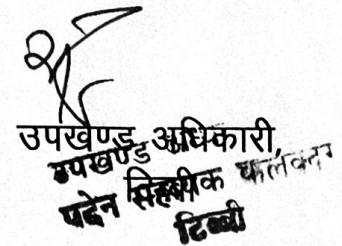 उपखण्ड अधिकारी,
उपखण्ड
पदेन सहायक कलक्टर
टिब्बी